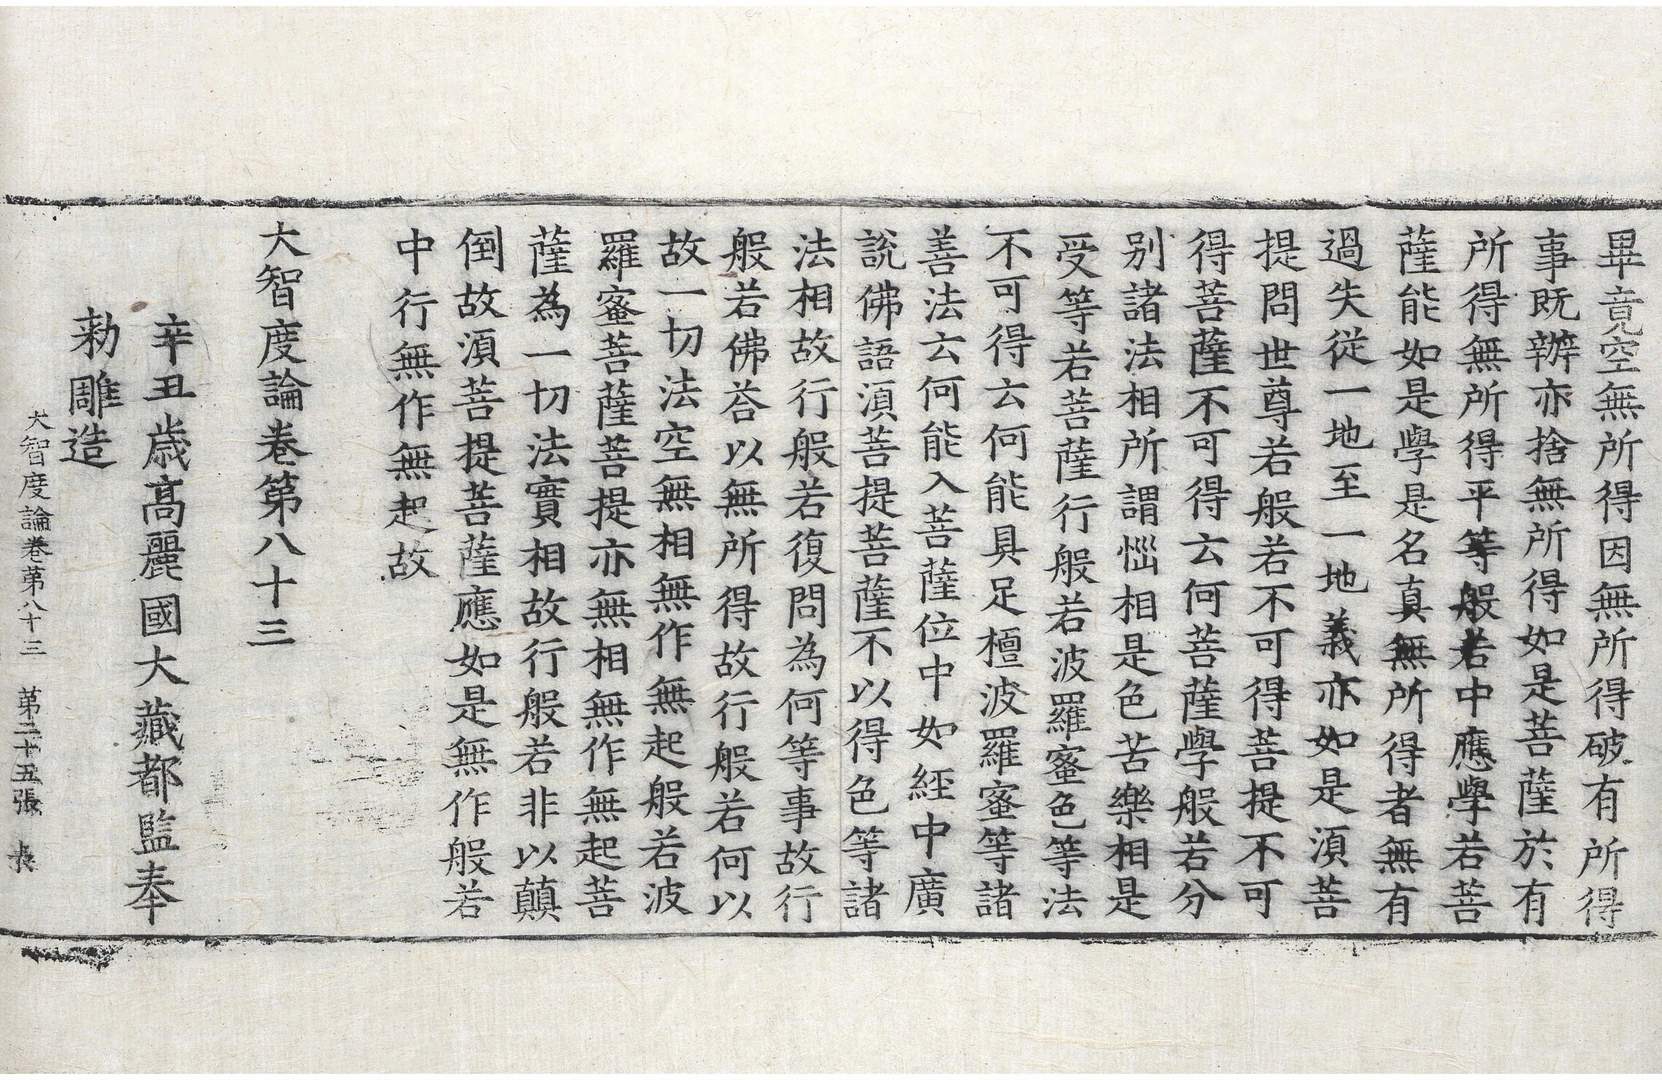 畢竟空無所得因無所得破有所得
事既辦亦捨無所得如是菩薩於有
所得無所得平等般若中應學若菩
薩能如是學是名真無所得者無有
過失從一地至一地義亦如是湏菩
提問世尊若般若不可得菩提不可
得菩薩不可得云何菩薩學般若分
别諸法相所謂惱相是色苦樂相是
受等若菩薩行般若波羅蜜色等法
不可得云何能具足檀波羅蜜等諸
善法云何能入菩薩位中如經中廣
說佛語湏菩提菩薩不以得色等諸
法相故行般若復問為何等事故行
般若佛荅以無所得故行般若何以
故一切法空無相無作無起般若波
羅蜜菩薩菩提亦無相無作無起菩
薩為一切法實相故行般若非以顛
倒故湏菩提菩薩應如是無作般若
中行無作無起故
大智度論卷第八十三
辛丑歳高麗國大藏都監奉
勑雕造
大智度論卷第八十三 第二十五張 長